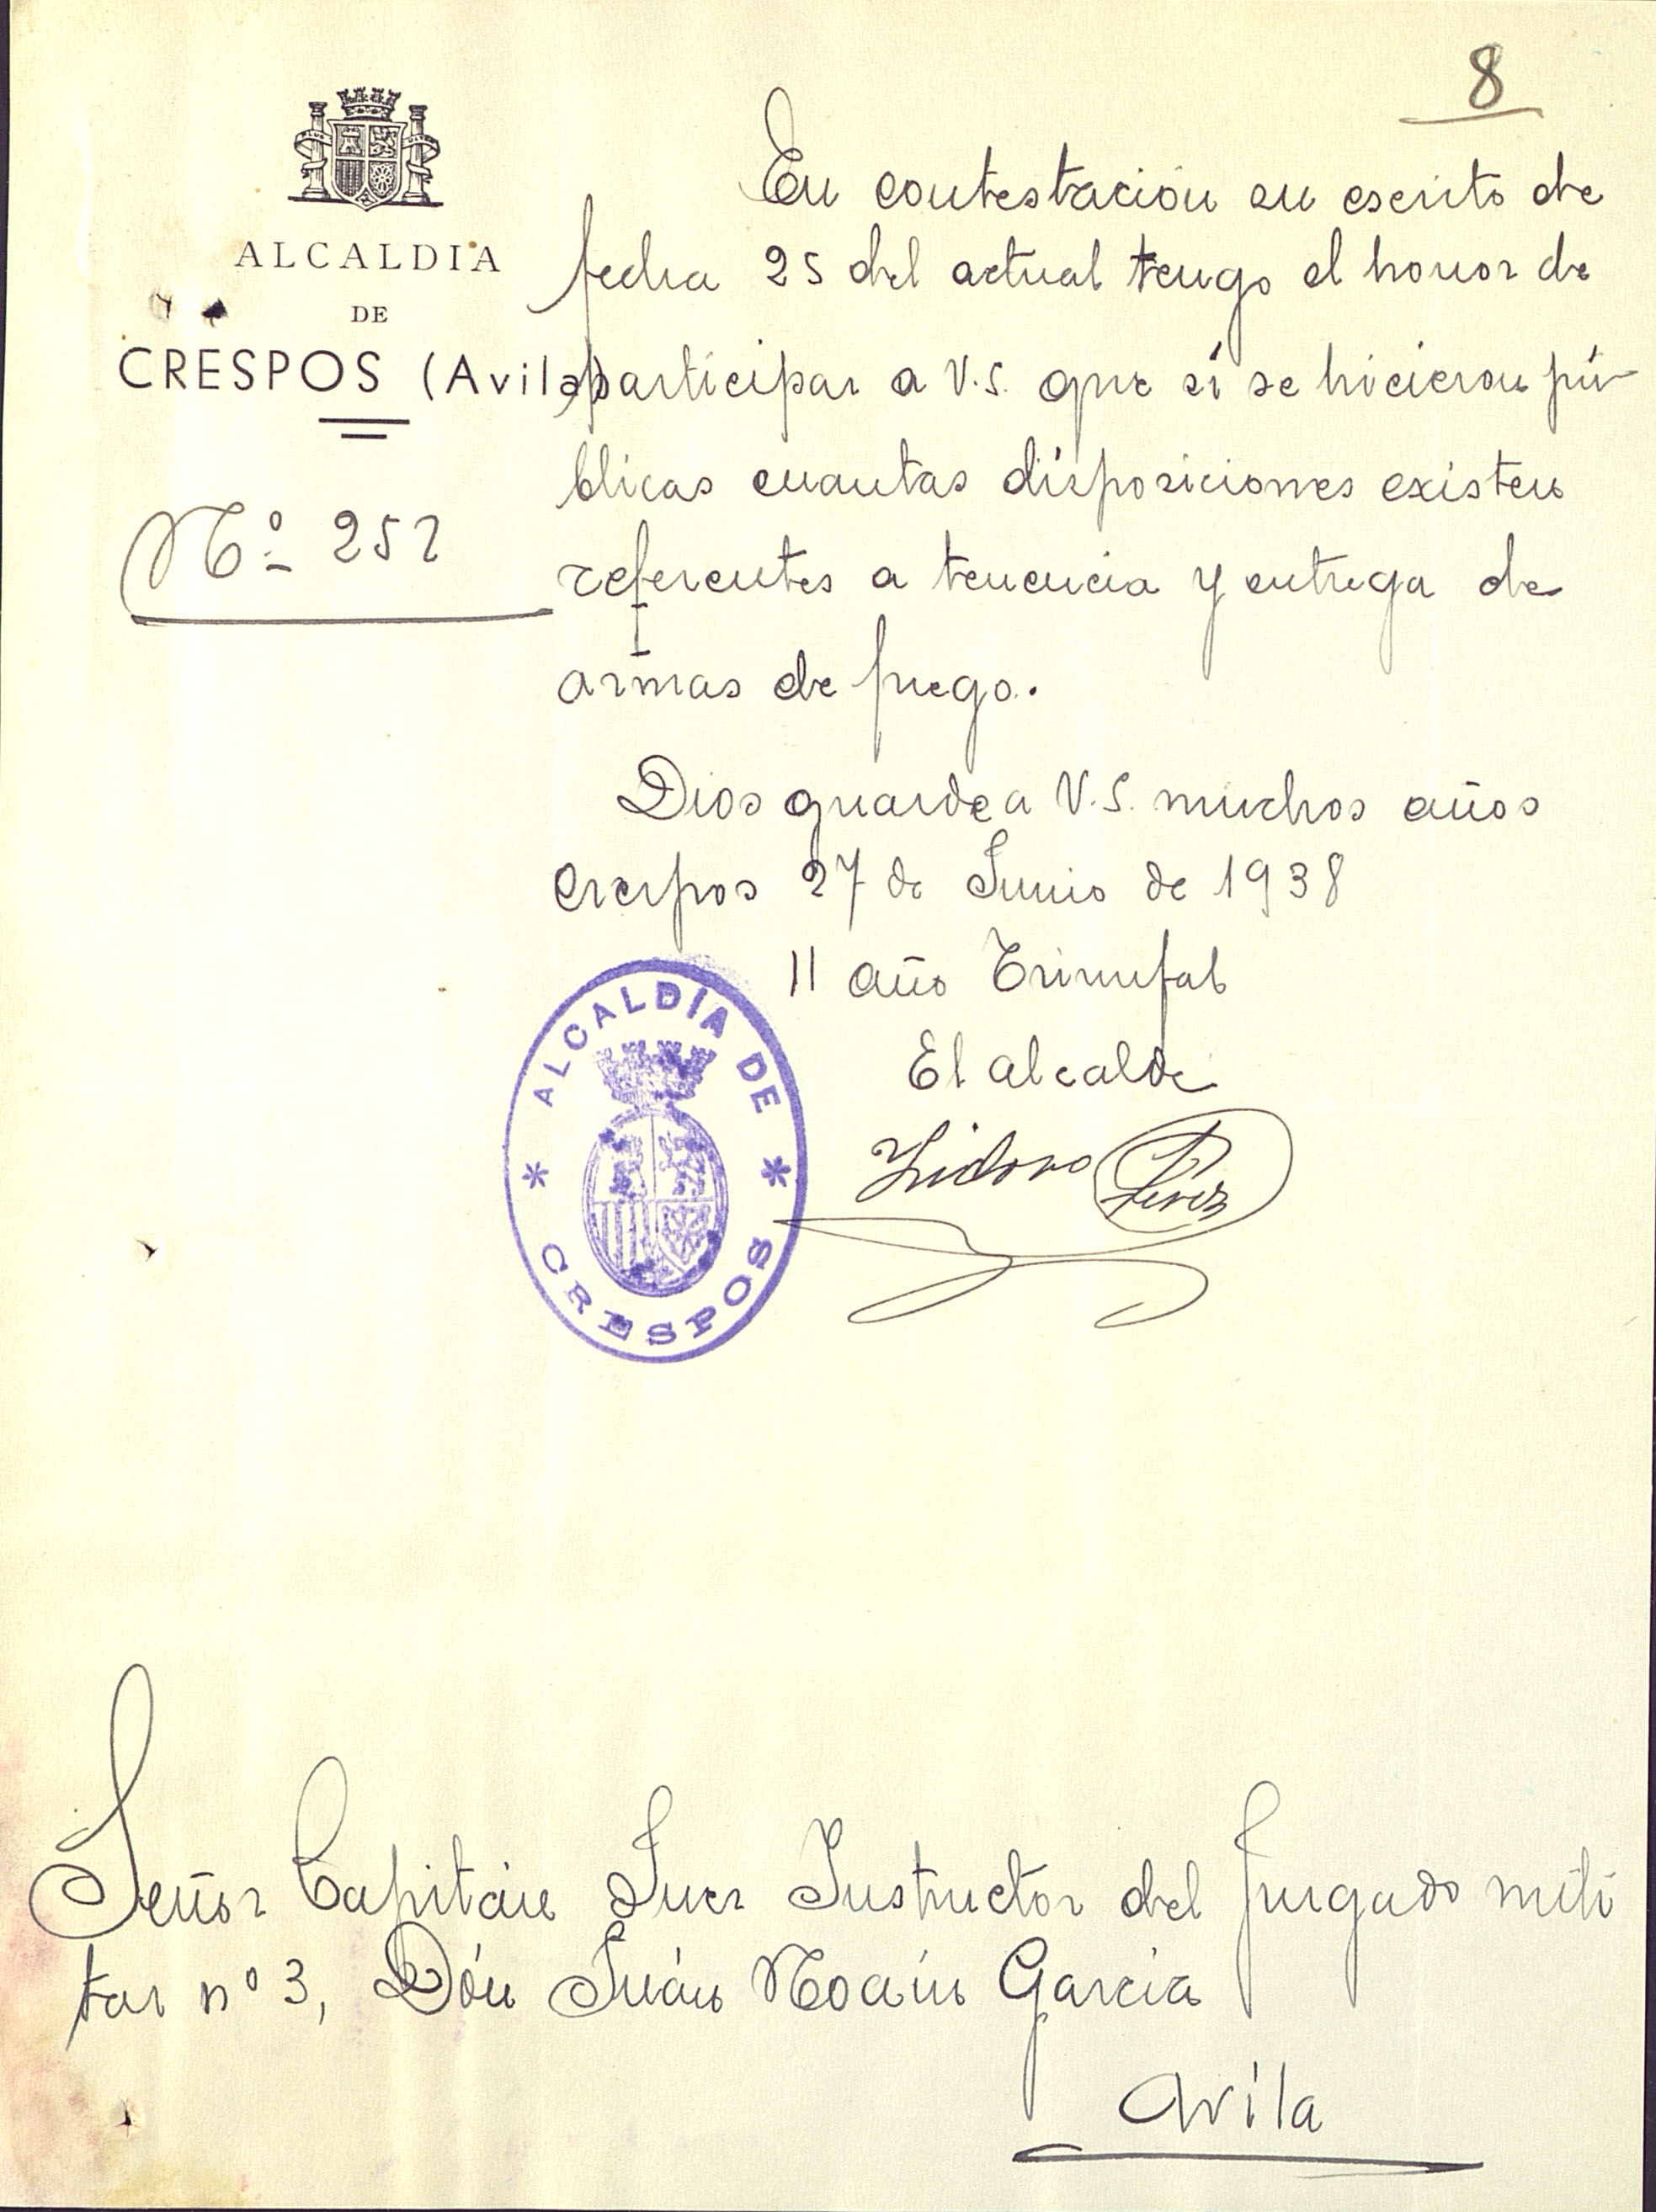 8
ALCALDIA
DE
CRESPOS (Avila)
Nº 252
En contestación su escrito de
fecha 25 del actual tengo el honor de
participar a V.S. que si se hicieron pú-
blicas cuantas disposiciones existen
referentes a tenencia y entrega de
armas de fuego.
Dios guarde a V.S. muchos años
Crespos 27 de Junio de 1938
II año Triunfal
El alcalde
Isidoro Pérez
ALCALDÍA DE
CRESPOS
Señor Capitán Juez Instructor del Juzgado mili
tar nº 3, Dón Juán Noaín García
Avila